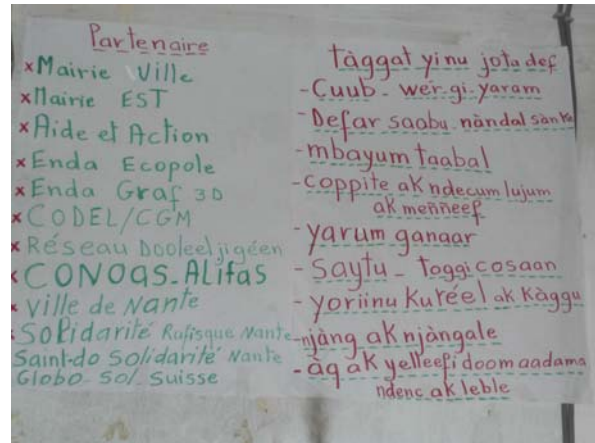 Partenaire
×Mairie Ville
×Mairie EST
×Aide et Action
×Enda Ecopole
×Enda Graf 3D
×CODEL/CGM
×Réseau Dooleel jigéen
×CONOAS-Alifas
×Ville de Nante
×Solidarité Rufisque Nante
Saint-do Solidarité Nante
Globo-Sol Suisse
tàggat yi nu jota def
-Cuub - wér-gi-yaram
-Defar saabu nàndal sanke
-mbayum taabal
-Coppite ak ndecum lujum
ak meññeef
-yarum ganaar
-Saytu - toggi cosaan
-yoriinu Kuréel ak Kàggu
-njàng ak njàngale
-àq ak yelleefi doom aadama
ndenc ak leble